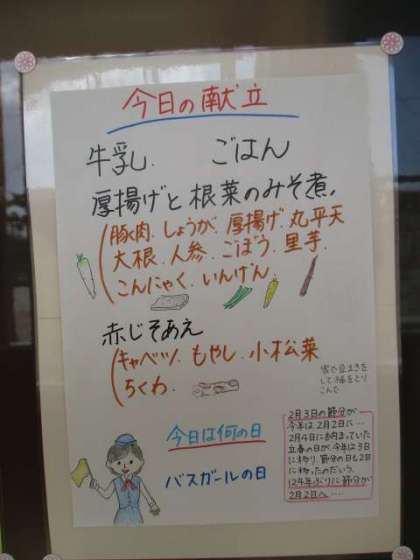 今日の献立
牛乳. ごはん
厚揚げと根菜のみそ煮.
豚肉. しょうが. 厚揚げ. 丸平天
大根. 人参. ごぼう. 里芋.
こんにゃく. いんげん.
赤じそあえ
キャベツ. もやし. 小松菜
ちくわ.
家で豆まきを
して福をとり
こんで
今日は何の日
バスガールの日
2月3日の節分が
今年は2月2日に…
2月4日に納まっていた
立春の日が、今年は3日
に移り、節分の日も2日
に移ったのだいう。
124年ぶりに節分が
2月2日へ….